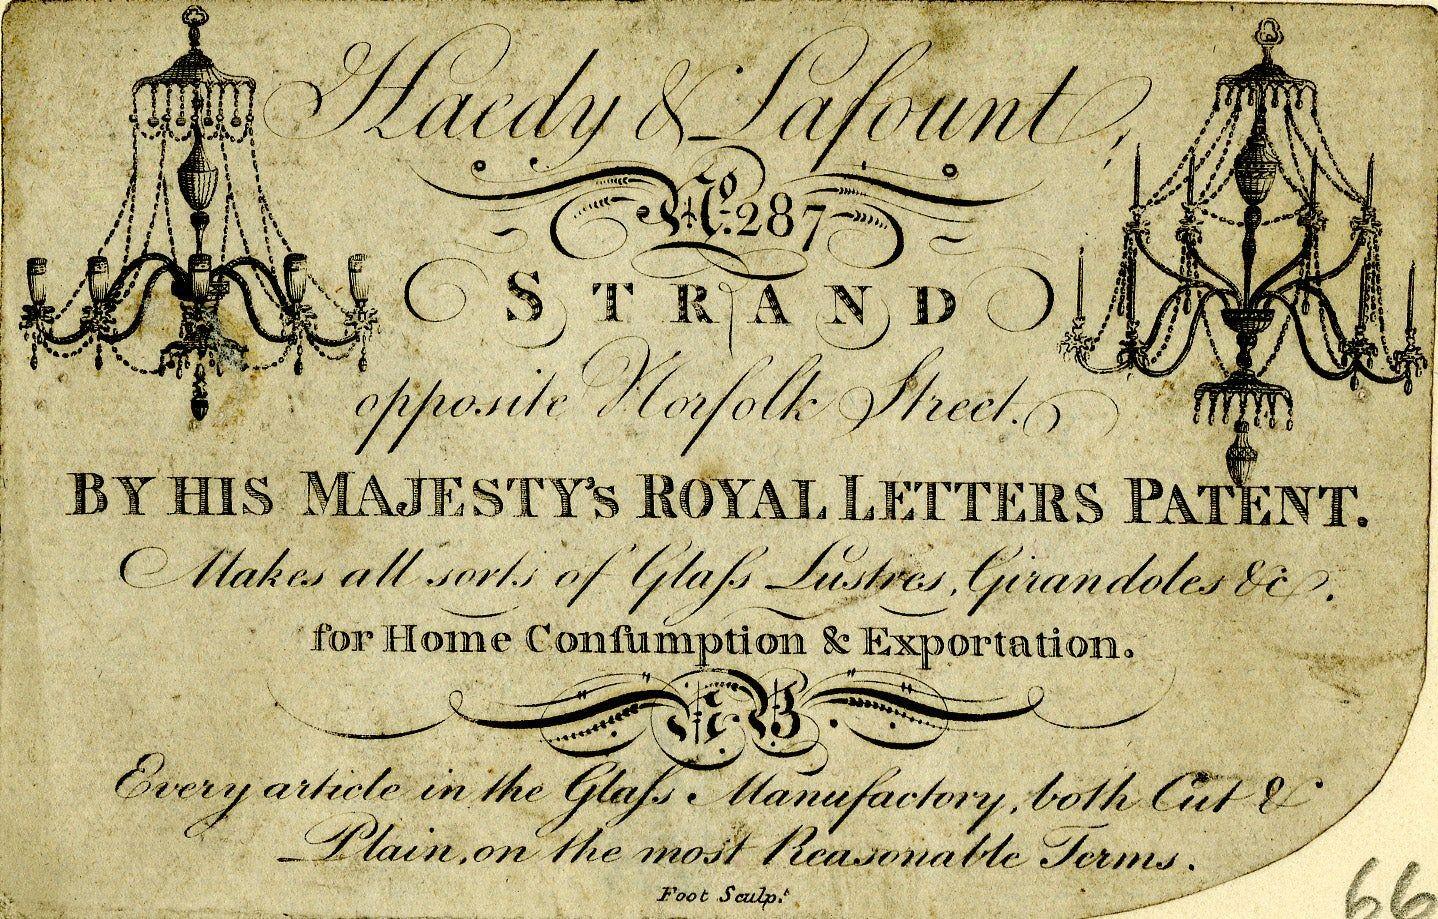 Haedy & Lafount,
No. 287
STRAND
opposite Norfolk Street.
BY HIS MAJESTY's ROYAL LETTERS PATENT.
Makes all sorts of Glaſs Lustres, Girandoles &c.
for Home Conſumption & Exportation.
NB
Every article in the Glaſs Manufactory, both Cut &
Plain, on the most Reasonable Terms.
Foot Sculpt.
66